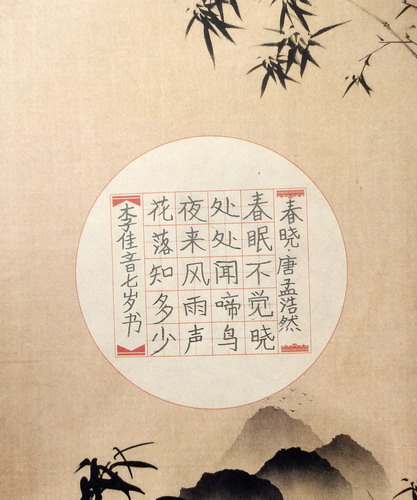 春晓·唐孟浩然
春眠不觉晓
处处闻啼鸟
夜来风雨声
花落知多少
李佳音七岁书